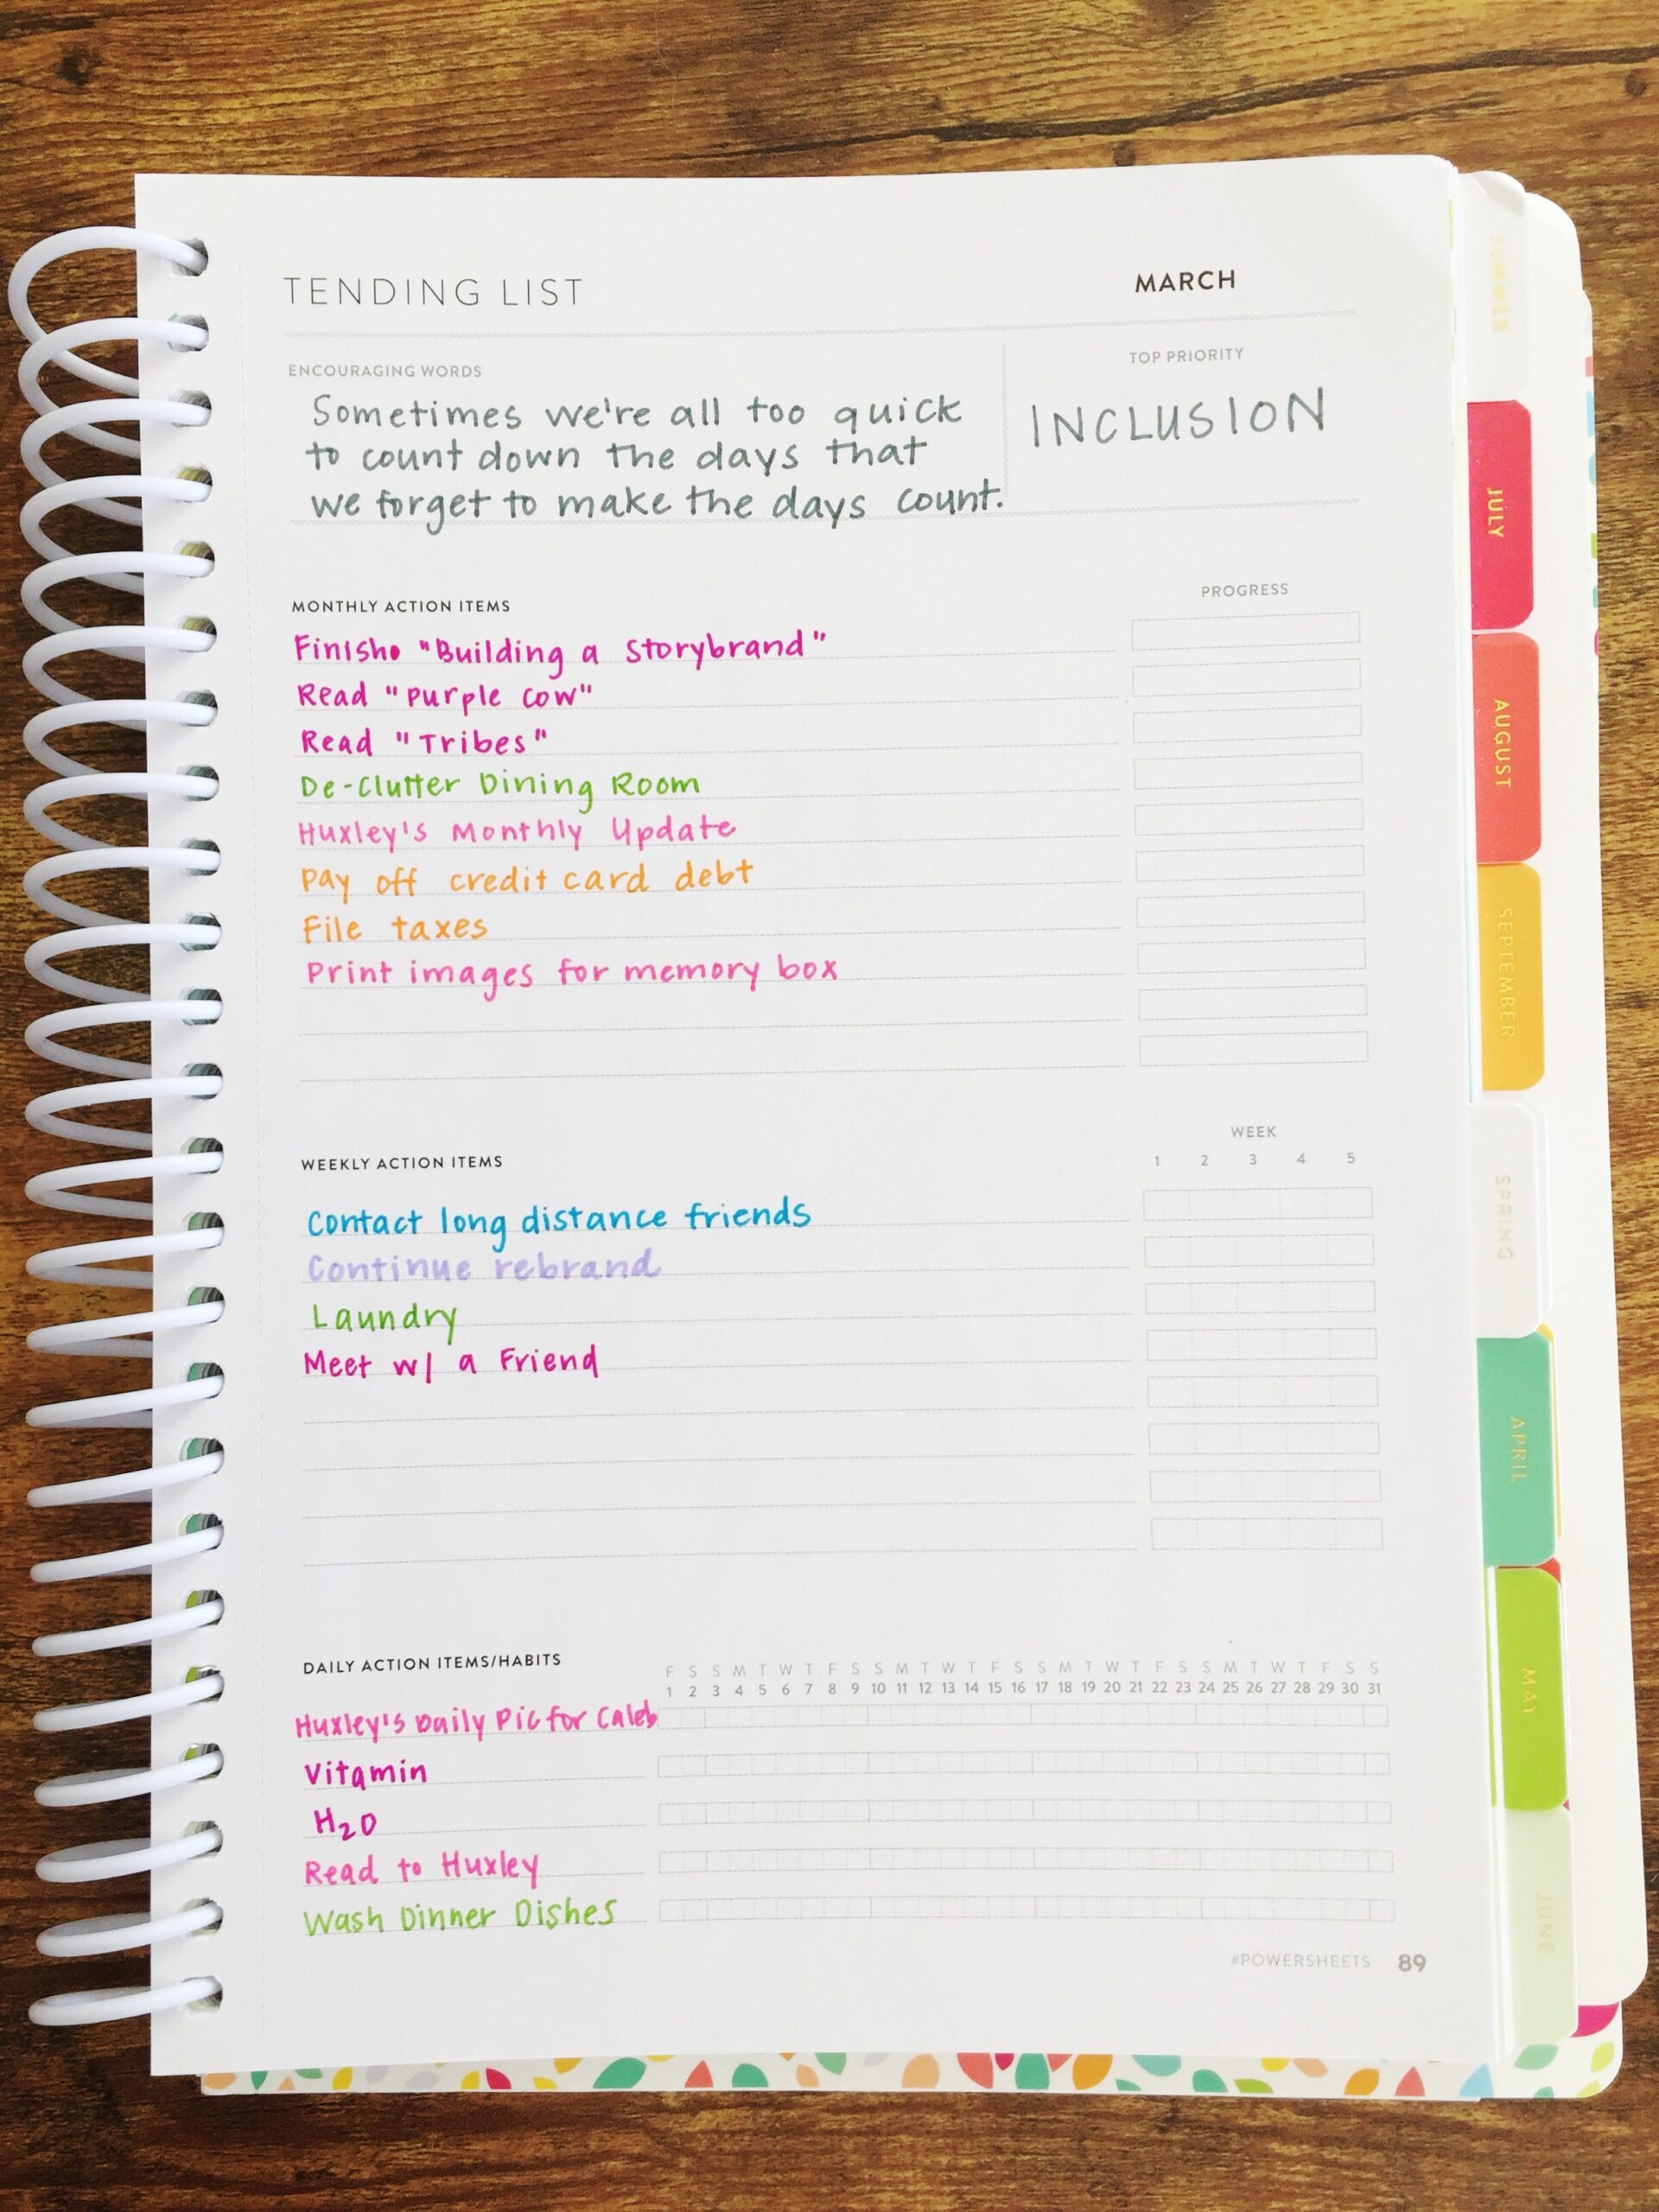 TENDING LIST
MARCH
ENCOURAGING WORDS
Sometimes we're all too quick
to count down the days that
we forget to make the days count.
TOP PRIORITY
INCLUSION
MONTHLY ACTION ITEMS
PROGRESS
Finish "Building a Storybrand"
Read "Purple Cow"
Read "Tribes"
De-Clutter Dining Room
Huxley's Monthly Update
Pay off credit card debt
File taxes
Print images for memory box
WEEKLY ACTION ITEMS
WEEK
1 2 3 4 5
Contact long distance friends
Continue rebrand
Laundry
Meet w/ a Friend
DAILY ACTION ITEMS/HABITS
F S S M T W T F S S M T W T F S S M T W T F S S M T W T F S S
1 2 3 4 5 6 7 8 9 10 11 12 13 14 15 16 17 18 19 20 21 22 23 24 25 26 27 28 29 30 31
Huxley's Daily Pic for Caleb
Vitamin
H₂O
Read to Huxley
Wash Dinner Dishes
#POWERSHEETS 89
SUMMER
JULY
AUGUST
SEPTEMBER
SPRING
APRIL
MAY
JUNE